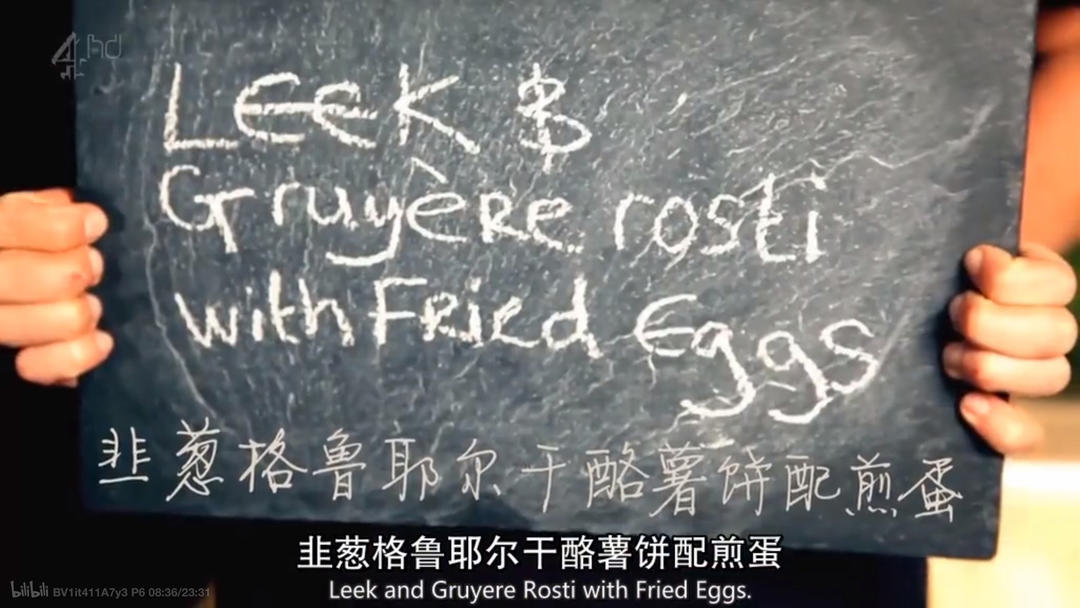 4hd
LEEK &
Gruyère rosti
with Fried Eggs
韭葱格鲁耶尔干酪薯饼配煎蛋
韭葱格鲁耶尔干酪薯饼配煎蛋
Leek and Gruyere Rosti with Fried Eggs.
bilibili BV1it411A7y3 P6 08:36/23:31